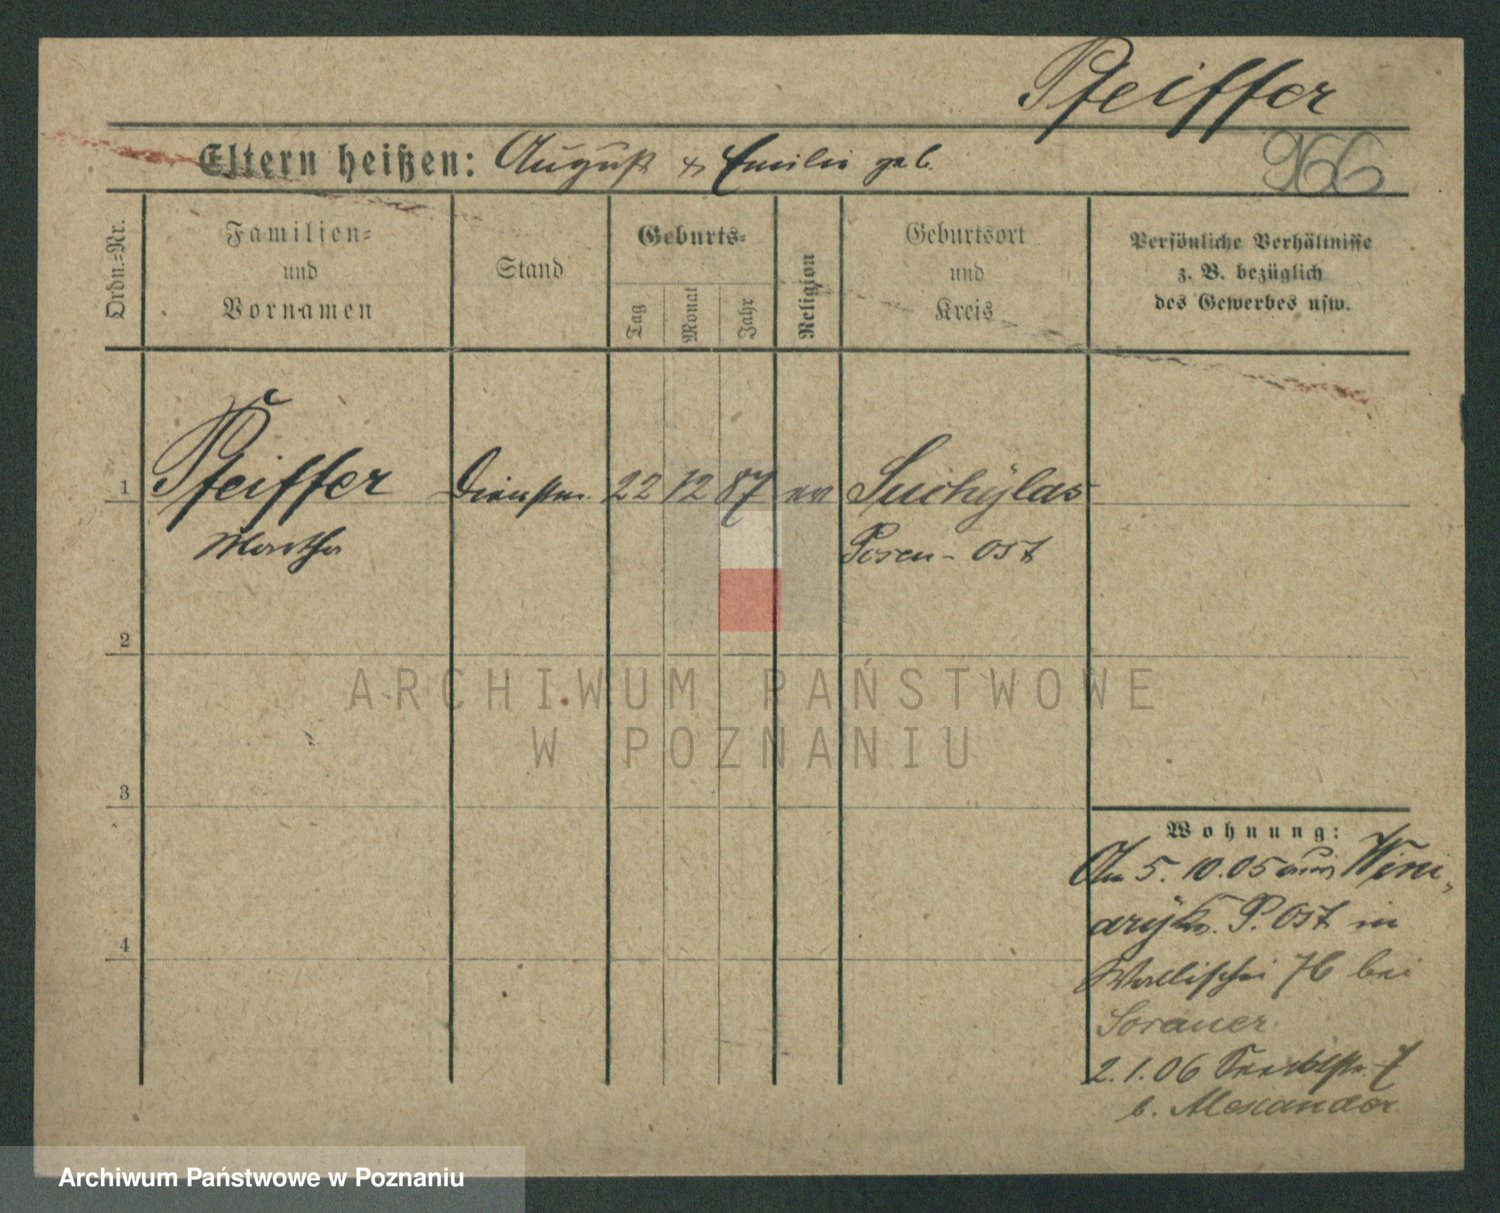 Pfeiffer
966
Eltern heißen: August & Emilie geb.
Ordn.-Nr.
Familien-
und
Vornamen
Stand
Geburts-
Tag
Monat
Jahr
Religion
Geburtsort
und
Kreis
Persönliche Verhältnisse
z. B. bezüglich
des Gewerbes usw.
1 Pfeiffer Dienstm. 22 12 87 ev Suchylas
Martha Posen-Ost
2
ARCHIWUM PAŃSTWOWE
W POZNANIU
3
Wohnung:
Am 5. 10. 05 aus Wini-
ary P. Ost in
4
Wallischei 76 bei
Sorauer
2. 1. 06 7
b. Alexander
Archiwum Państwowe w Poznaniu